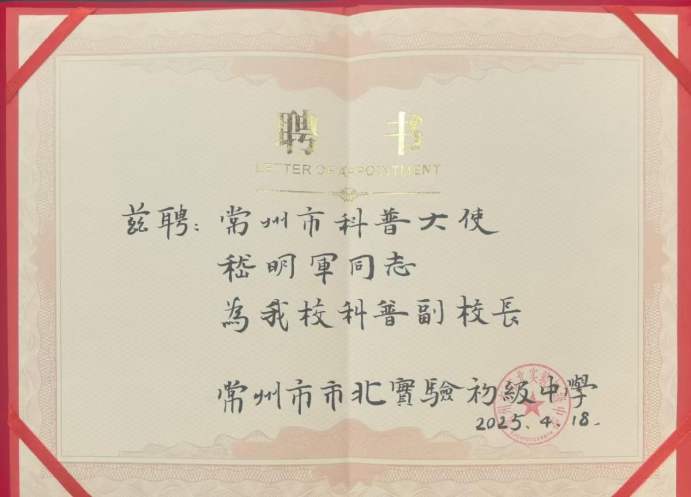 聘书
LETTER OF APPOINTMENT
兹聘：常州市科普大使
嵇明軍同志
為我校科普副校長
常州市市北實驗初級中學
2025.4.18.